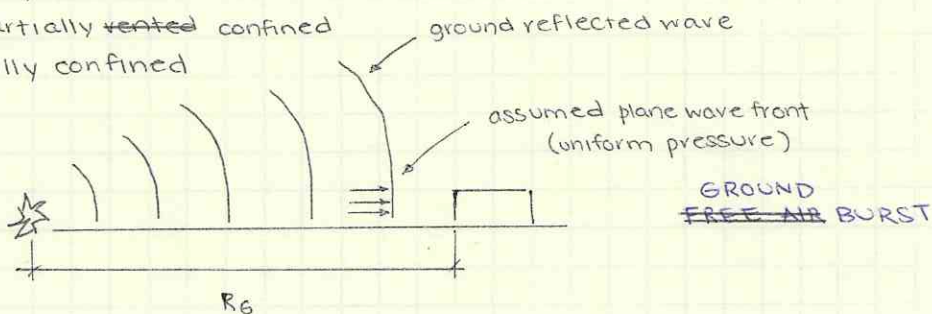 rtially vented confined
lly confined
ground reflected wave
assumed plane wave front
(uniform pressure)
GROUND
FREE AIR BURST
RG